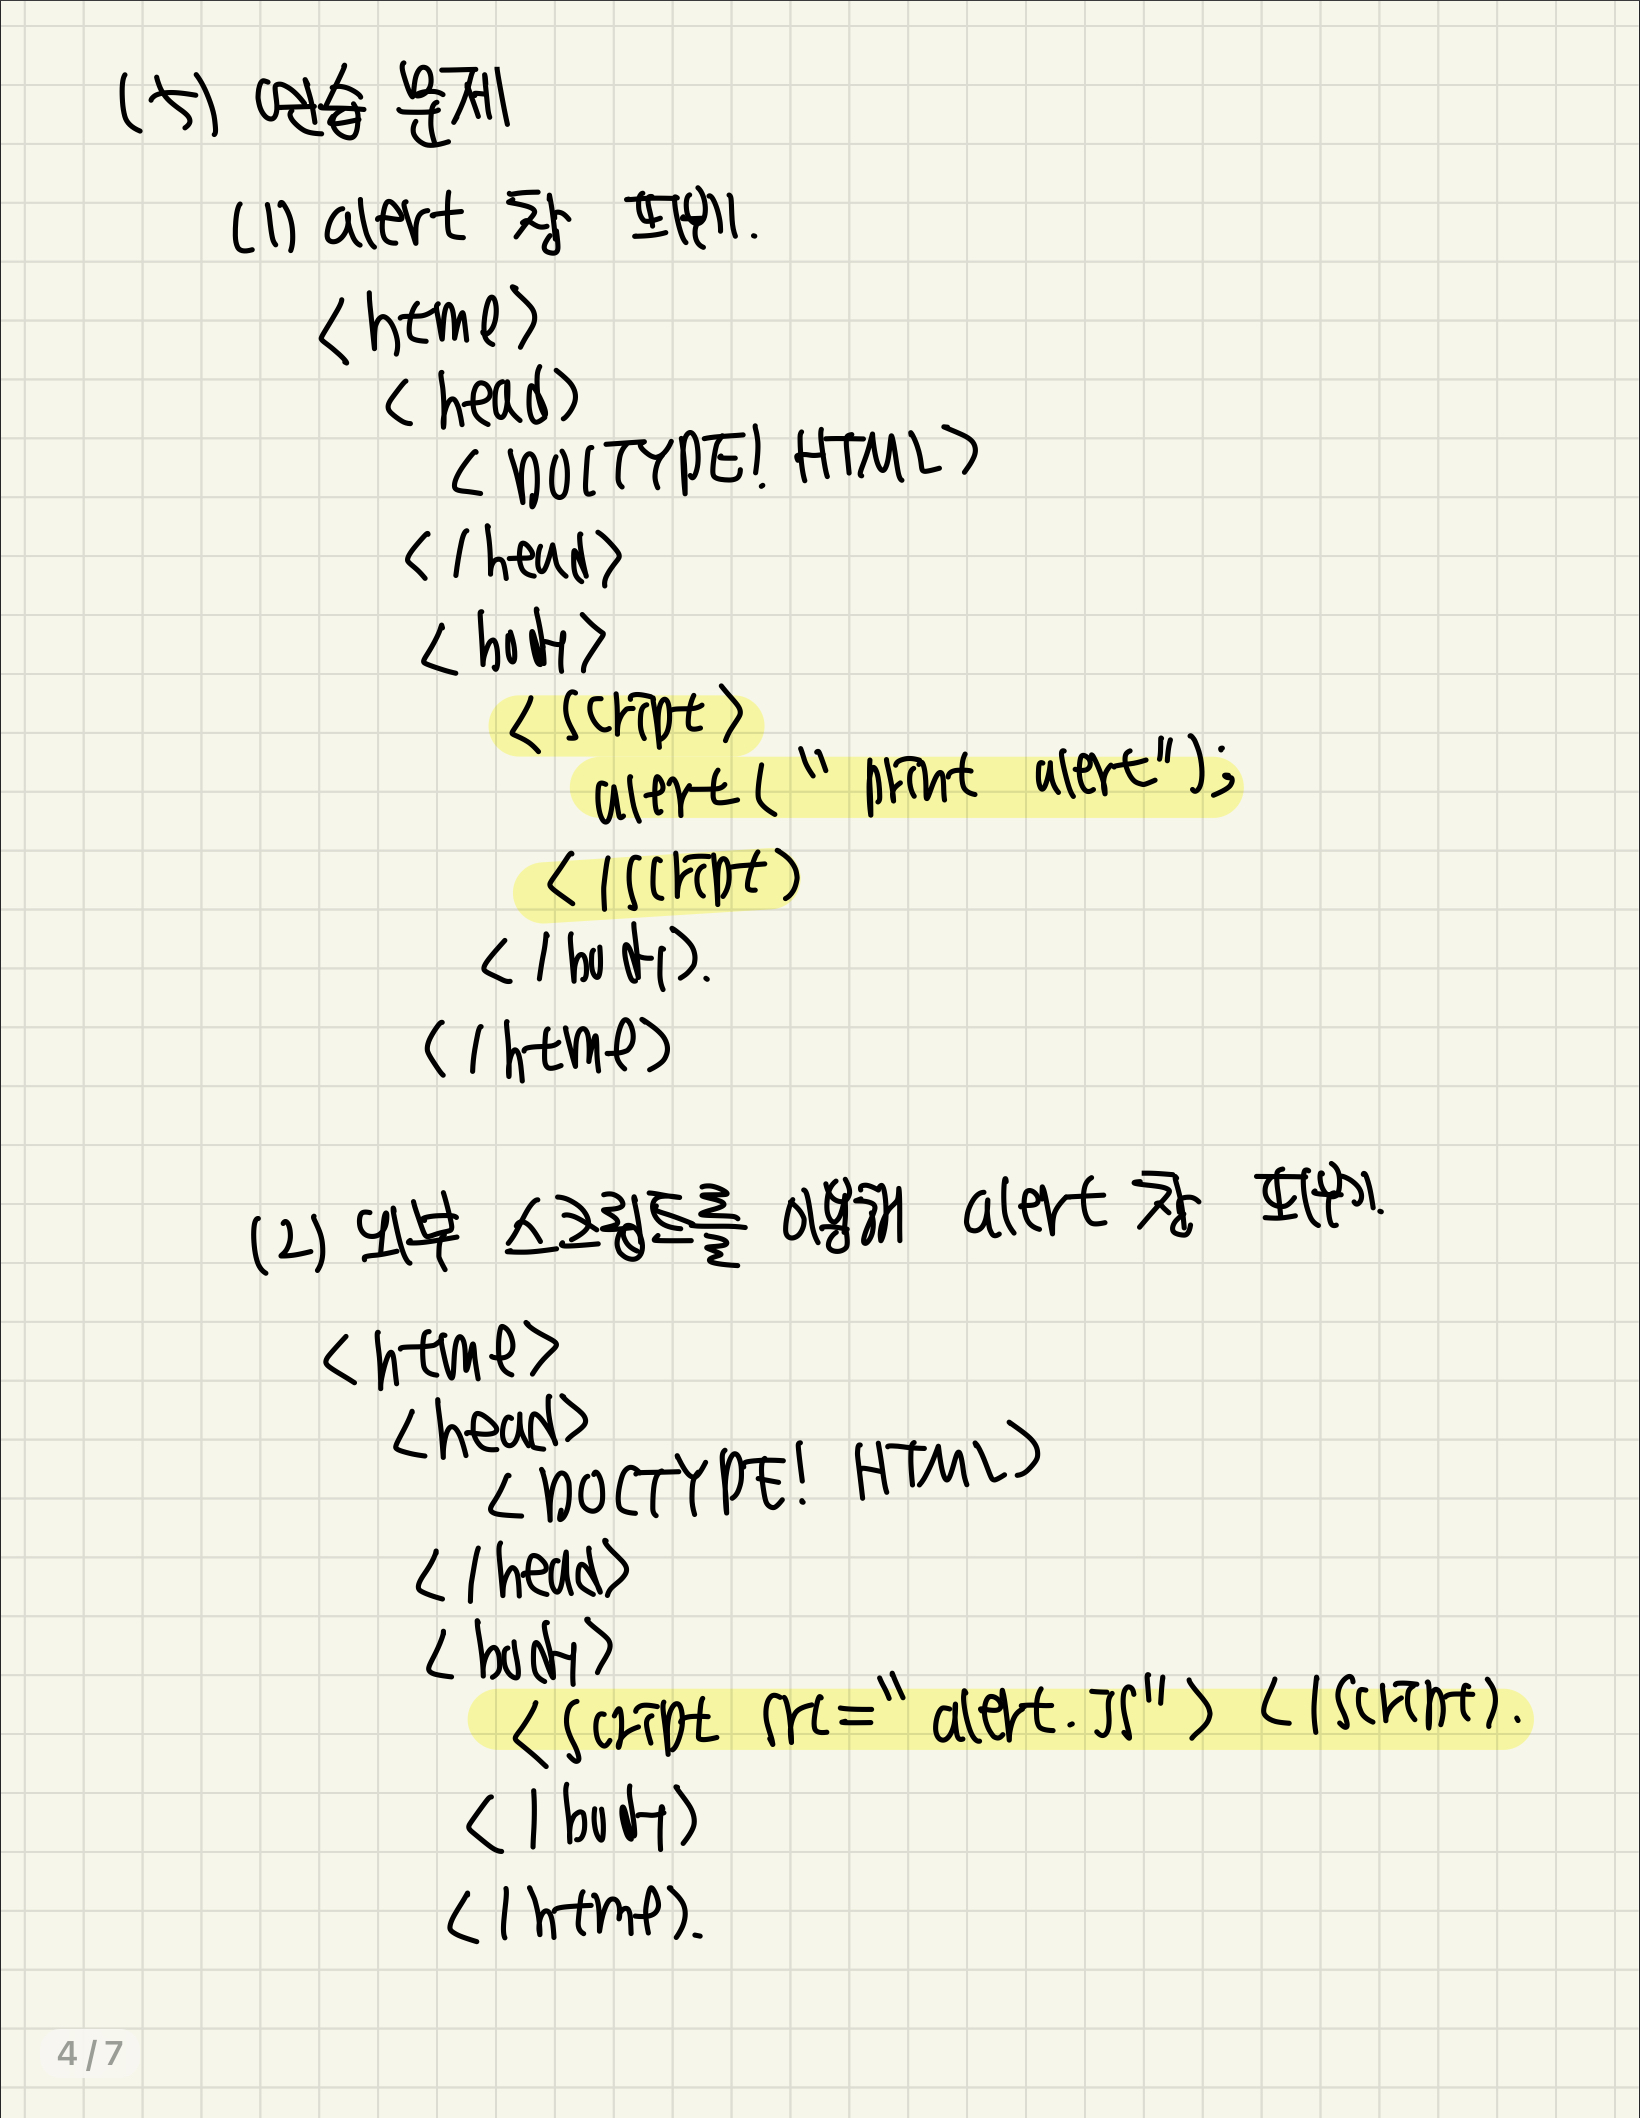 (5) 연습 문제
(1) alert 창 띄우기.
<html>
<head>
<DOCTYPE! HTML>
</head>
<body>
<script>
alert("print alert");
</script>
</body>.
</html>
(2) 외부 스크립트를 이용해 alert 창 띄우기.
<html>
<head>
<DOCTYPE! HTML>
</head>
<body>
<script src="alert.js"> </script>.
</body>
</html>.
4/7